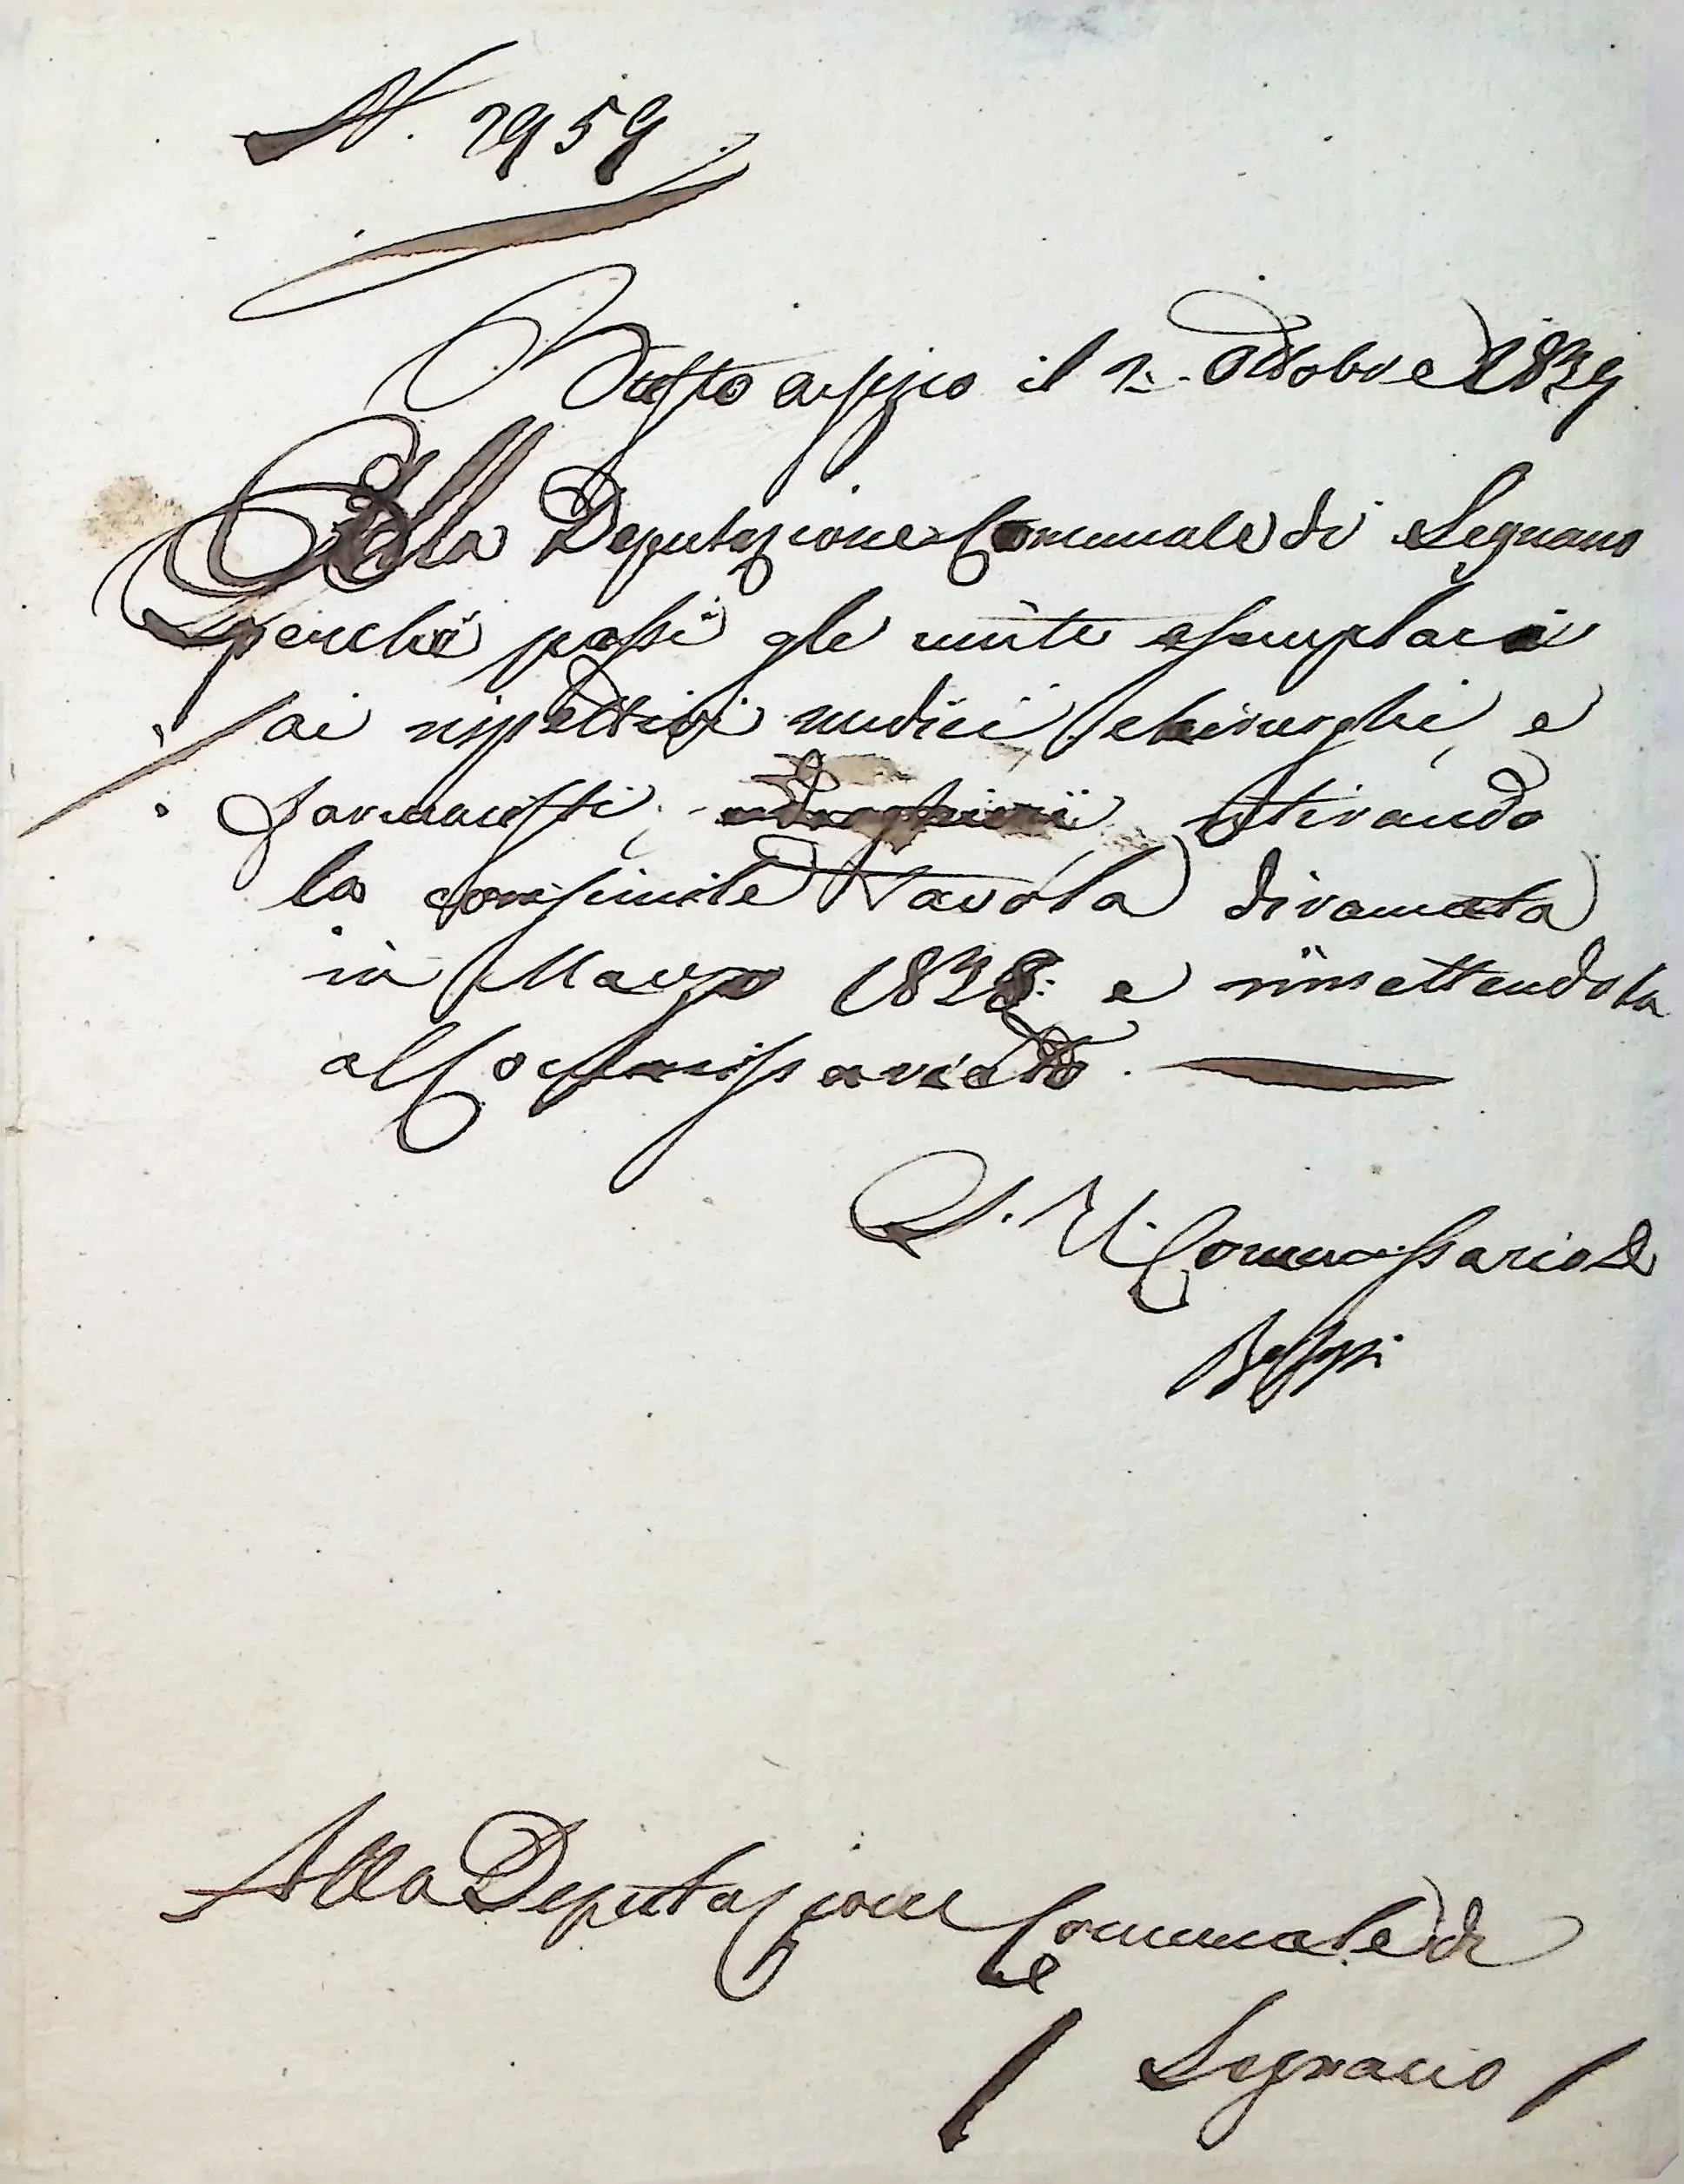 N. 2959
Busto arsizio il 2. Ottobre 1839
Alla Deputazione Comunale di Legnano
perché passi gle unite esemplari
ai rispettivi medici chirurghi e
farmacisti, e droghieri ritirando
la consimile Tavola diramata
in Marzo 1838: e rimettendola
al Commissariato.
Il R. Commissario D
Alla Deputazione Comunale di
Legnano